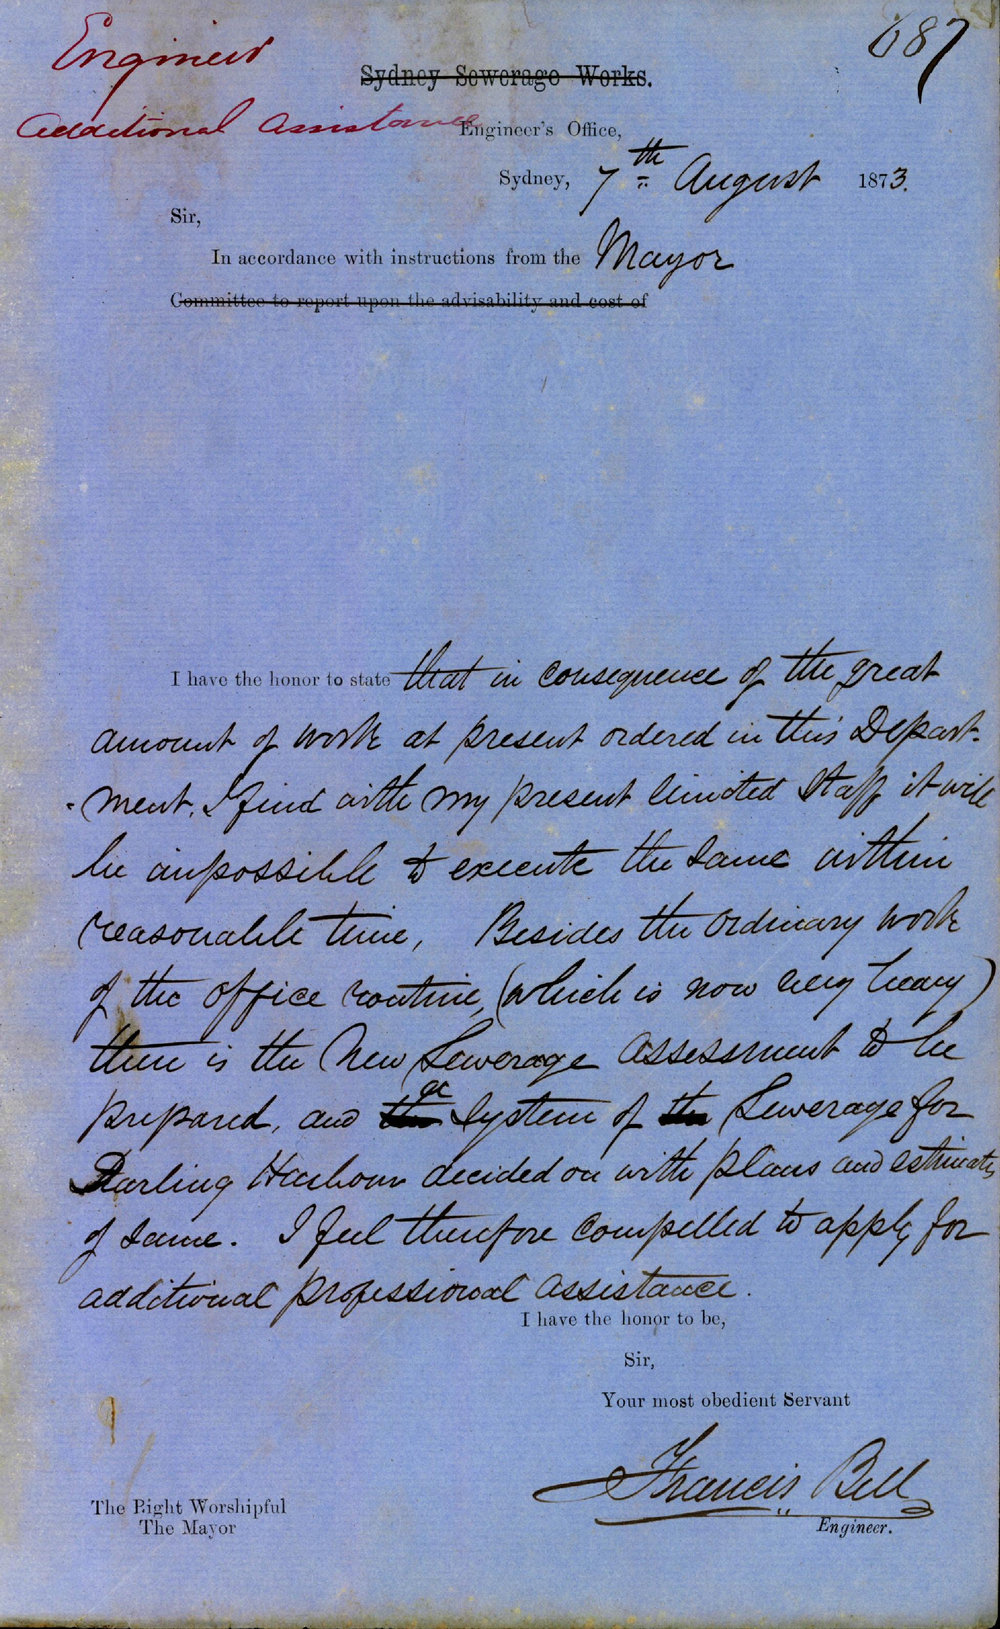 Engineer
687
Sydney Sewerage Works.
Additional Assistance
Engineer's Office,
Sydney, 7th August 1873.
Sir,
In accordance with instructions from the Mayor
Committee to report upon the advisability and cost of
I have the honor to state that in consequence of the great
amount of work at present ordered in this Depart-
-ment. I find with my present limited Staff it will
be impossible to execute the same within
reasonable time, Besides the ordinary work
of the office routine, (which is now very heavy)
there is the New Sewerage Assessment to be
prepared, and the a System of the Sewerage for
Darling Harbour decided on with plans and estimates
of same. I feel therefore compelled to apply for
additional professional assistance.
I have the honor to be,
Sir,
Your most obedient Servant
Francis Bell
Engineer.
The Right Worshipful
The Mayor